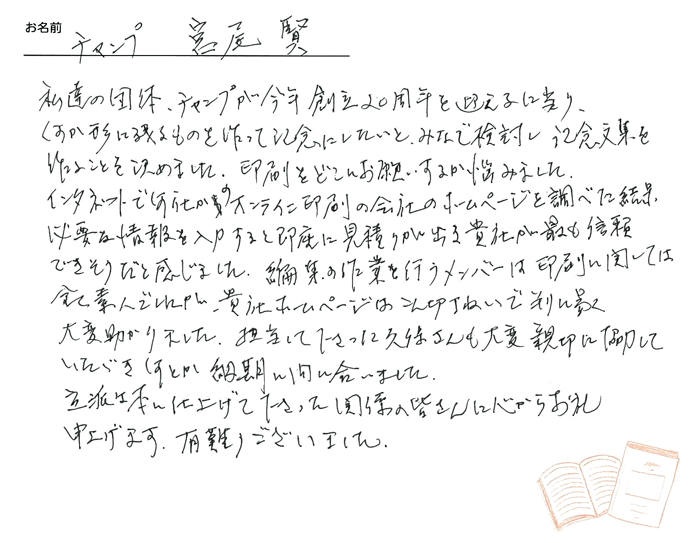 お名前 チャンプ 宮尾 賢
私達の団体、チャンプが今年創立20周年を迎えるに当り、
何か形に残るものを作って記念にしたいと、みなで検討し記念文集を
作ることを決めました。印刷をどこにお願いするか悩みました。
インタネットで何社かのオンライン印刷の会社のホームページを調べた結果、
必要な情報を入力すると即座に見積りが出る貴社が最も信頼
できそうだと感じました。編集の作業を行うメンバーは印刷に関しては
全て素人でしたが、貴社ホームページは
大変助かりました。担当して下さった久保さんも大変親切に協力して
いただき何とか納期に間に合いました。
立派な本に仕上げて下さった関係の皆さんに心からお礼
申上げます。有難うございました。